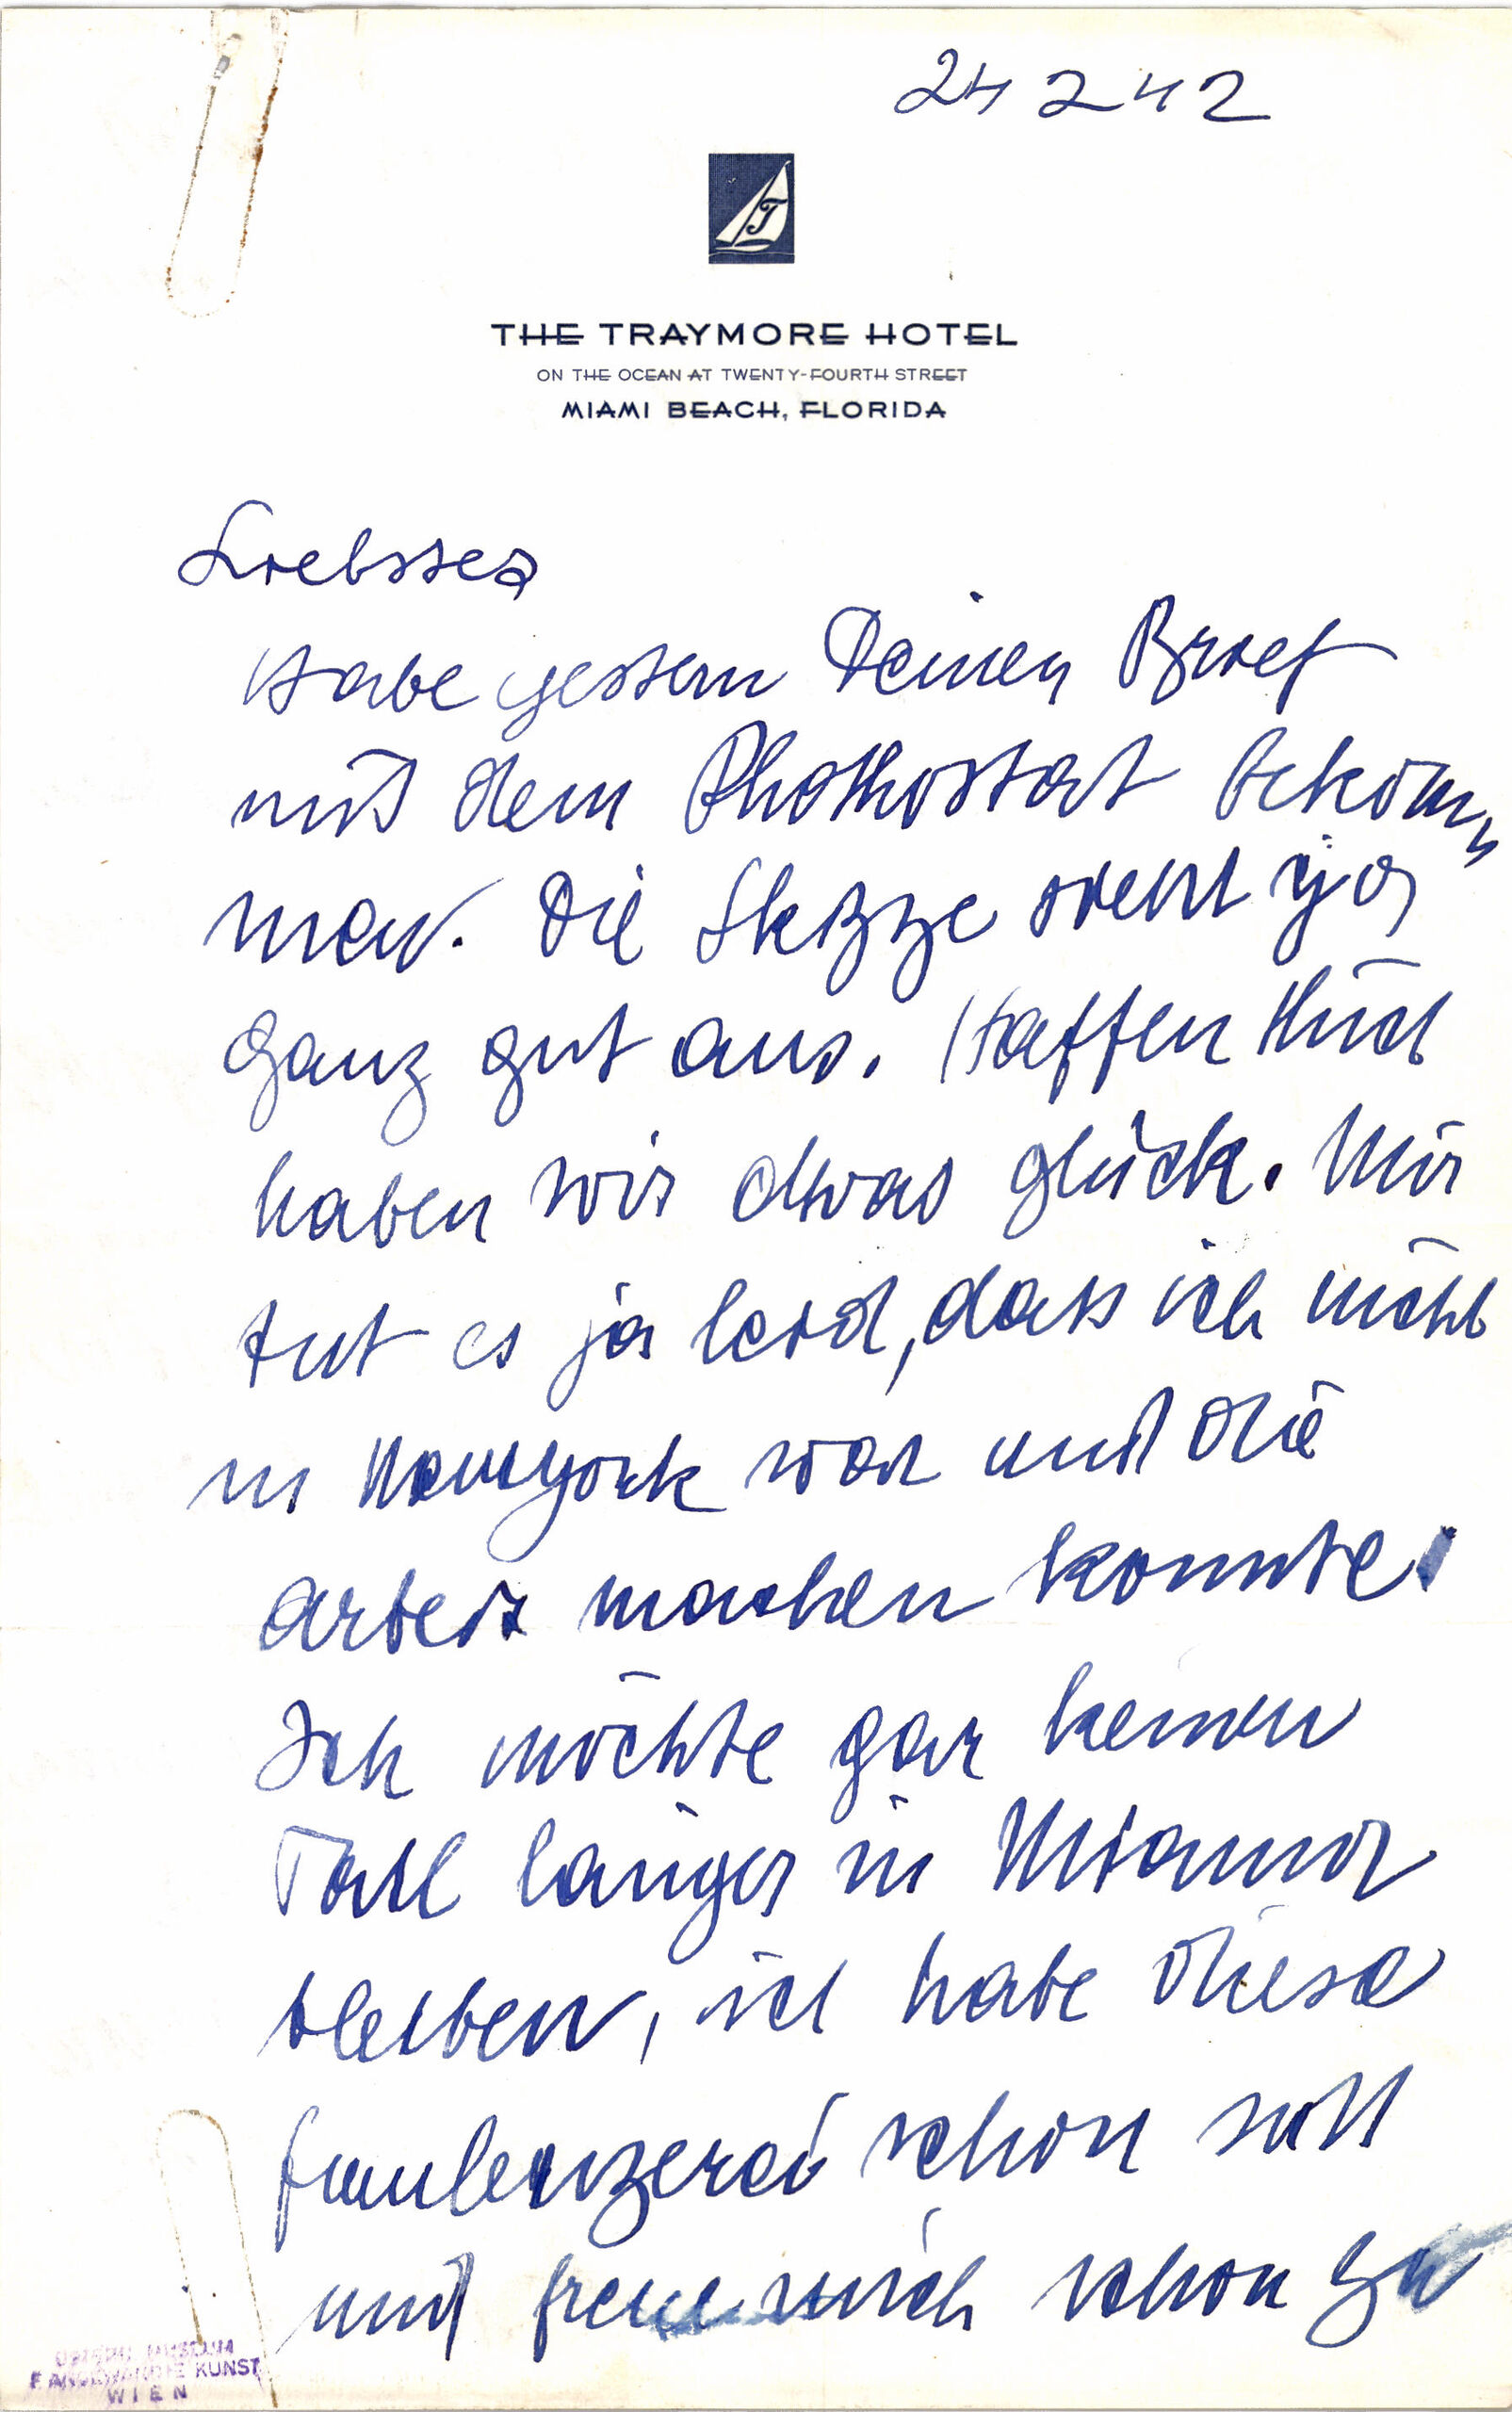 24 2 42
T
THE TRAYMORE HOTEL
ON THE OCEAN AT TWENTY-FOURTH STREET
MIAMI BEACH, FLORIDA
Liebster
Habe gestern Deinen Brief
mit dem Phothostat bekom-
men. Die Skizze sieht ja
ganz gut aus. Hoffentlich
haben wir etwas glück. Mir
tut es ja leid, dass ich nicht
in Newyork war und die
arbeit machen konnte.
Ich möchte gar keinen
Fall länger in Miami
bleiben, ich habe diese
faulenzerei schon satt
und freue mich schon zu
MUSEUM
F. ANGEWANDTE KUNST
WIEN